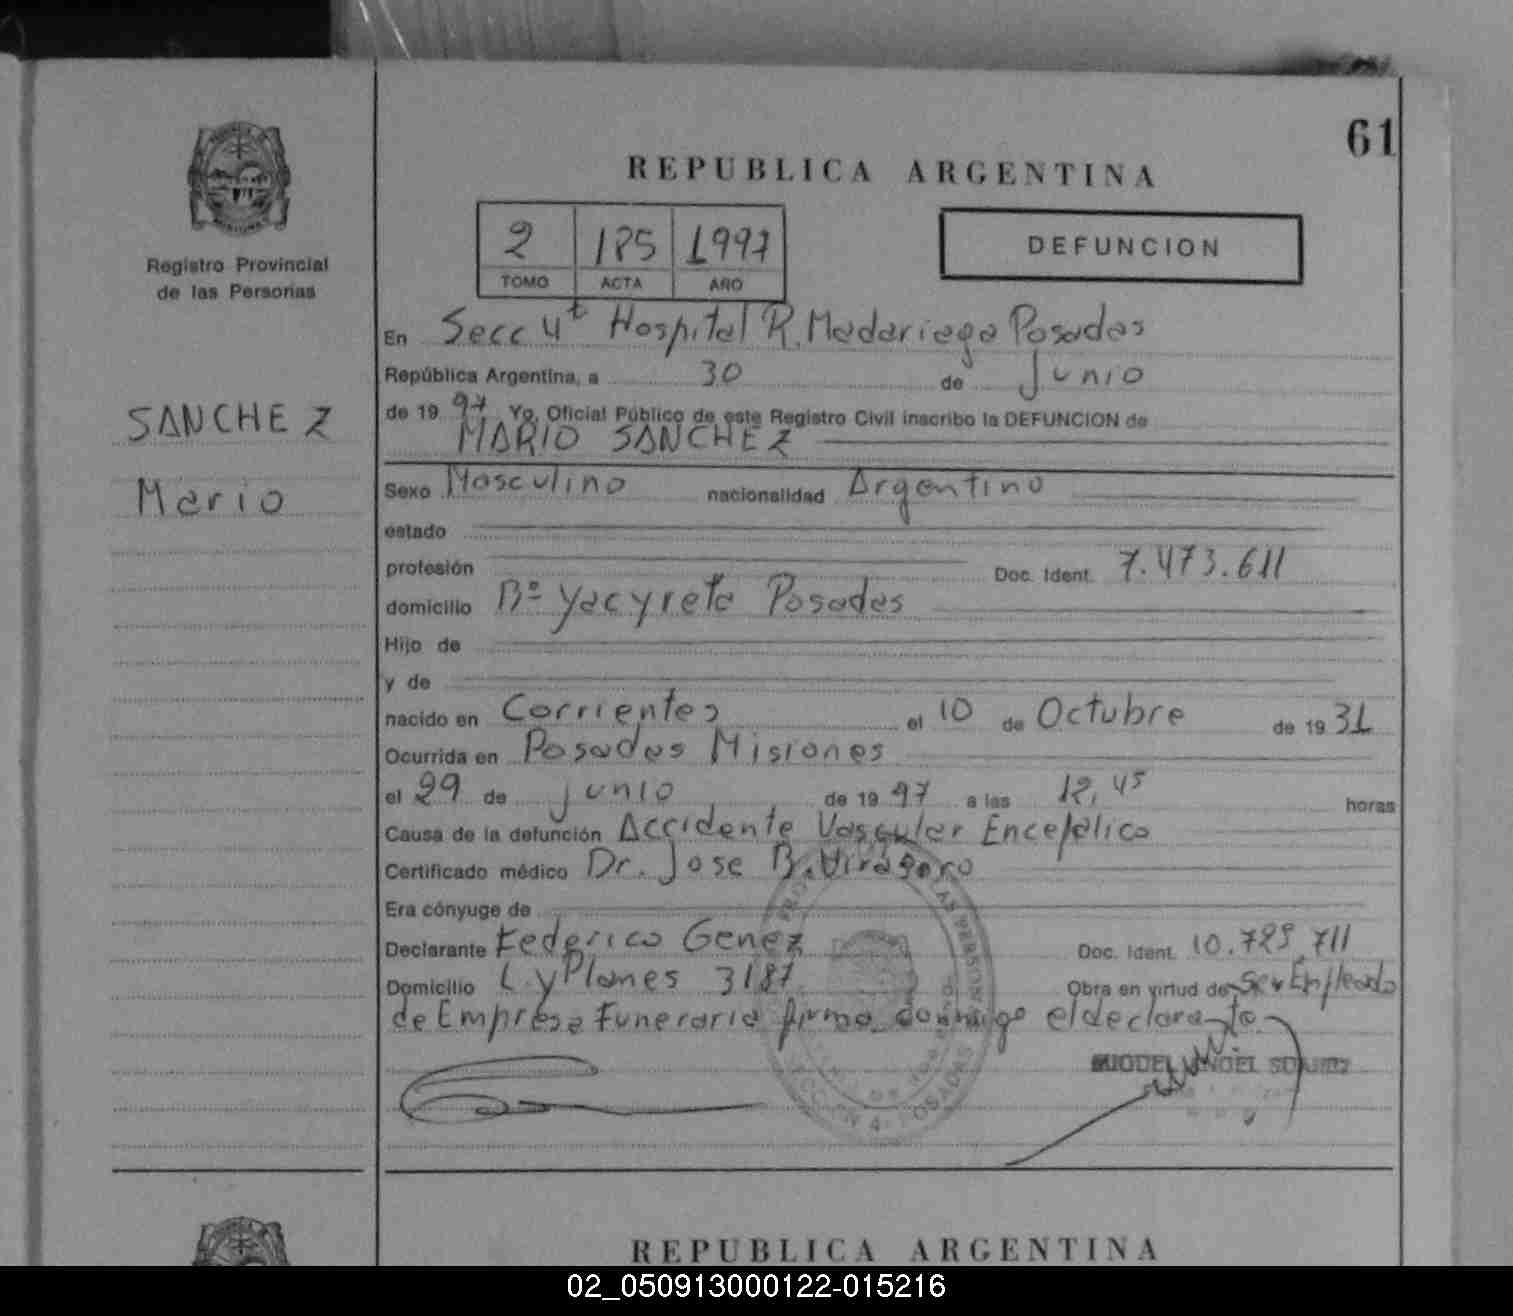 61
REPUBLICA ARGENTINA
2 185 1997
TOMO ACTA AÑO
DEFUNCION
Registro Provincial
de las Personas
SANCHEZ
Mario
En Secc 4ta Hospital R. Madariaga Posadas
República Argentina, a 30 de Junio
de 19 97 Yo, Oficial Público de este Registro Civil inscribo la DEFUNCION de
MARIO SANCHEZ
Sexo Masculino nacionalidad Argentino
estado
profesión Doc. Ident. 7.473.611
domicilio Bº Yacyreta Posadas
Hijo de
y de
nacido en Corrientes el 10 de Octubre de 19 31
Ocurrida en Posadas Misiones
el 29 de junio de 19 97 a las 12,45 horas
Causa de la defunción Accidente Vascular Encefalico
Certificado médico Dr. Jose B. Virasoro
Era cónyuge de
Declarante Federico Genez Doc. Ident. 10.729.711
Domicilio L. y Planes 3187 Obra en virtud de ser Empleado
de Empresa Funeraria firma conmigo el declarante.
MIGUEL ANGEL
SECCION 4 POSADAS
REPUBLICA ARGENTINA
02_050913000122-015216